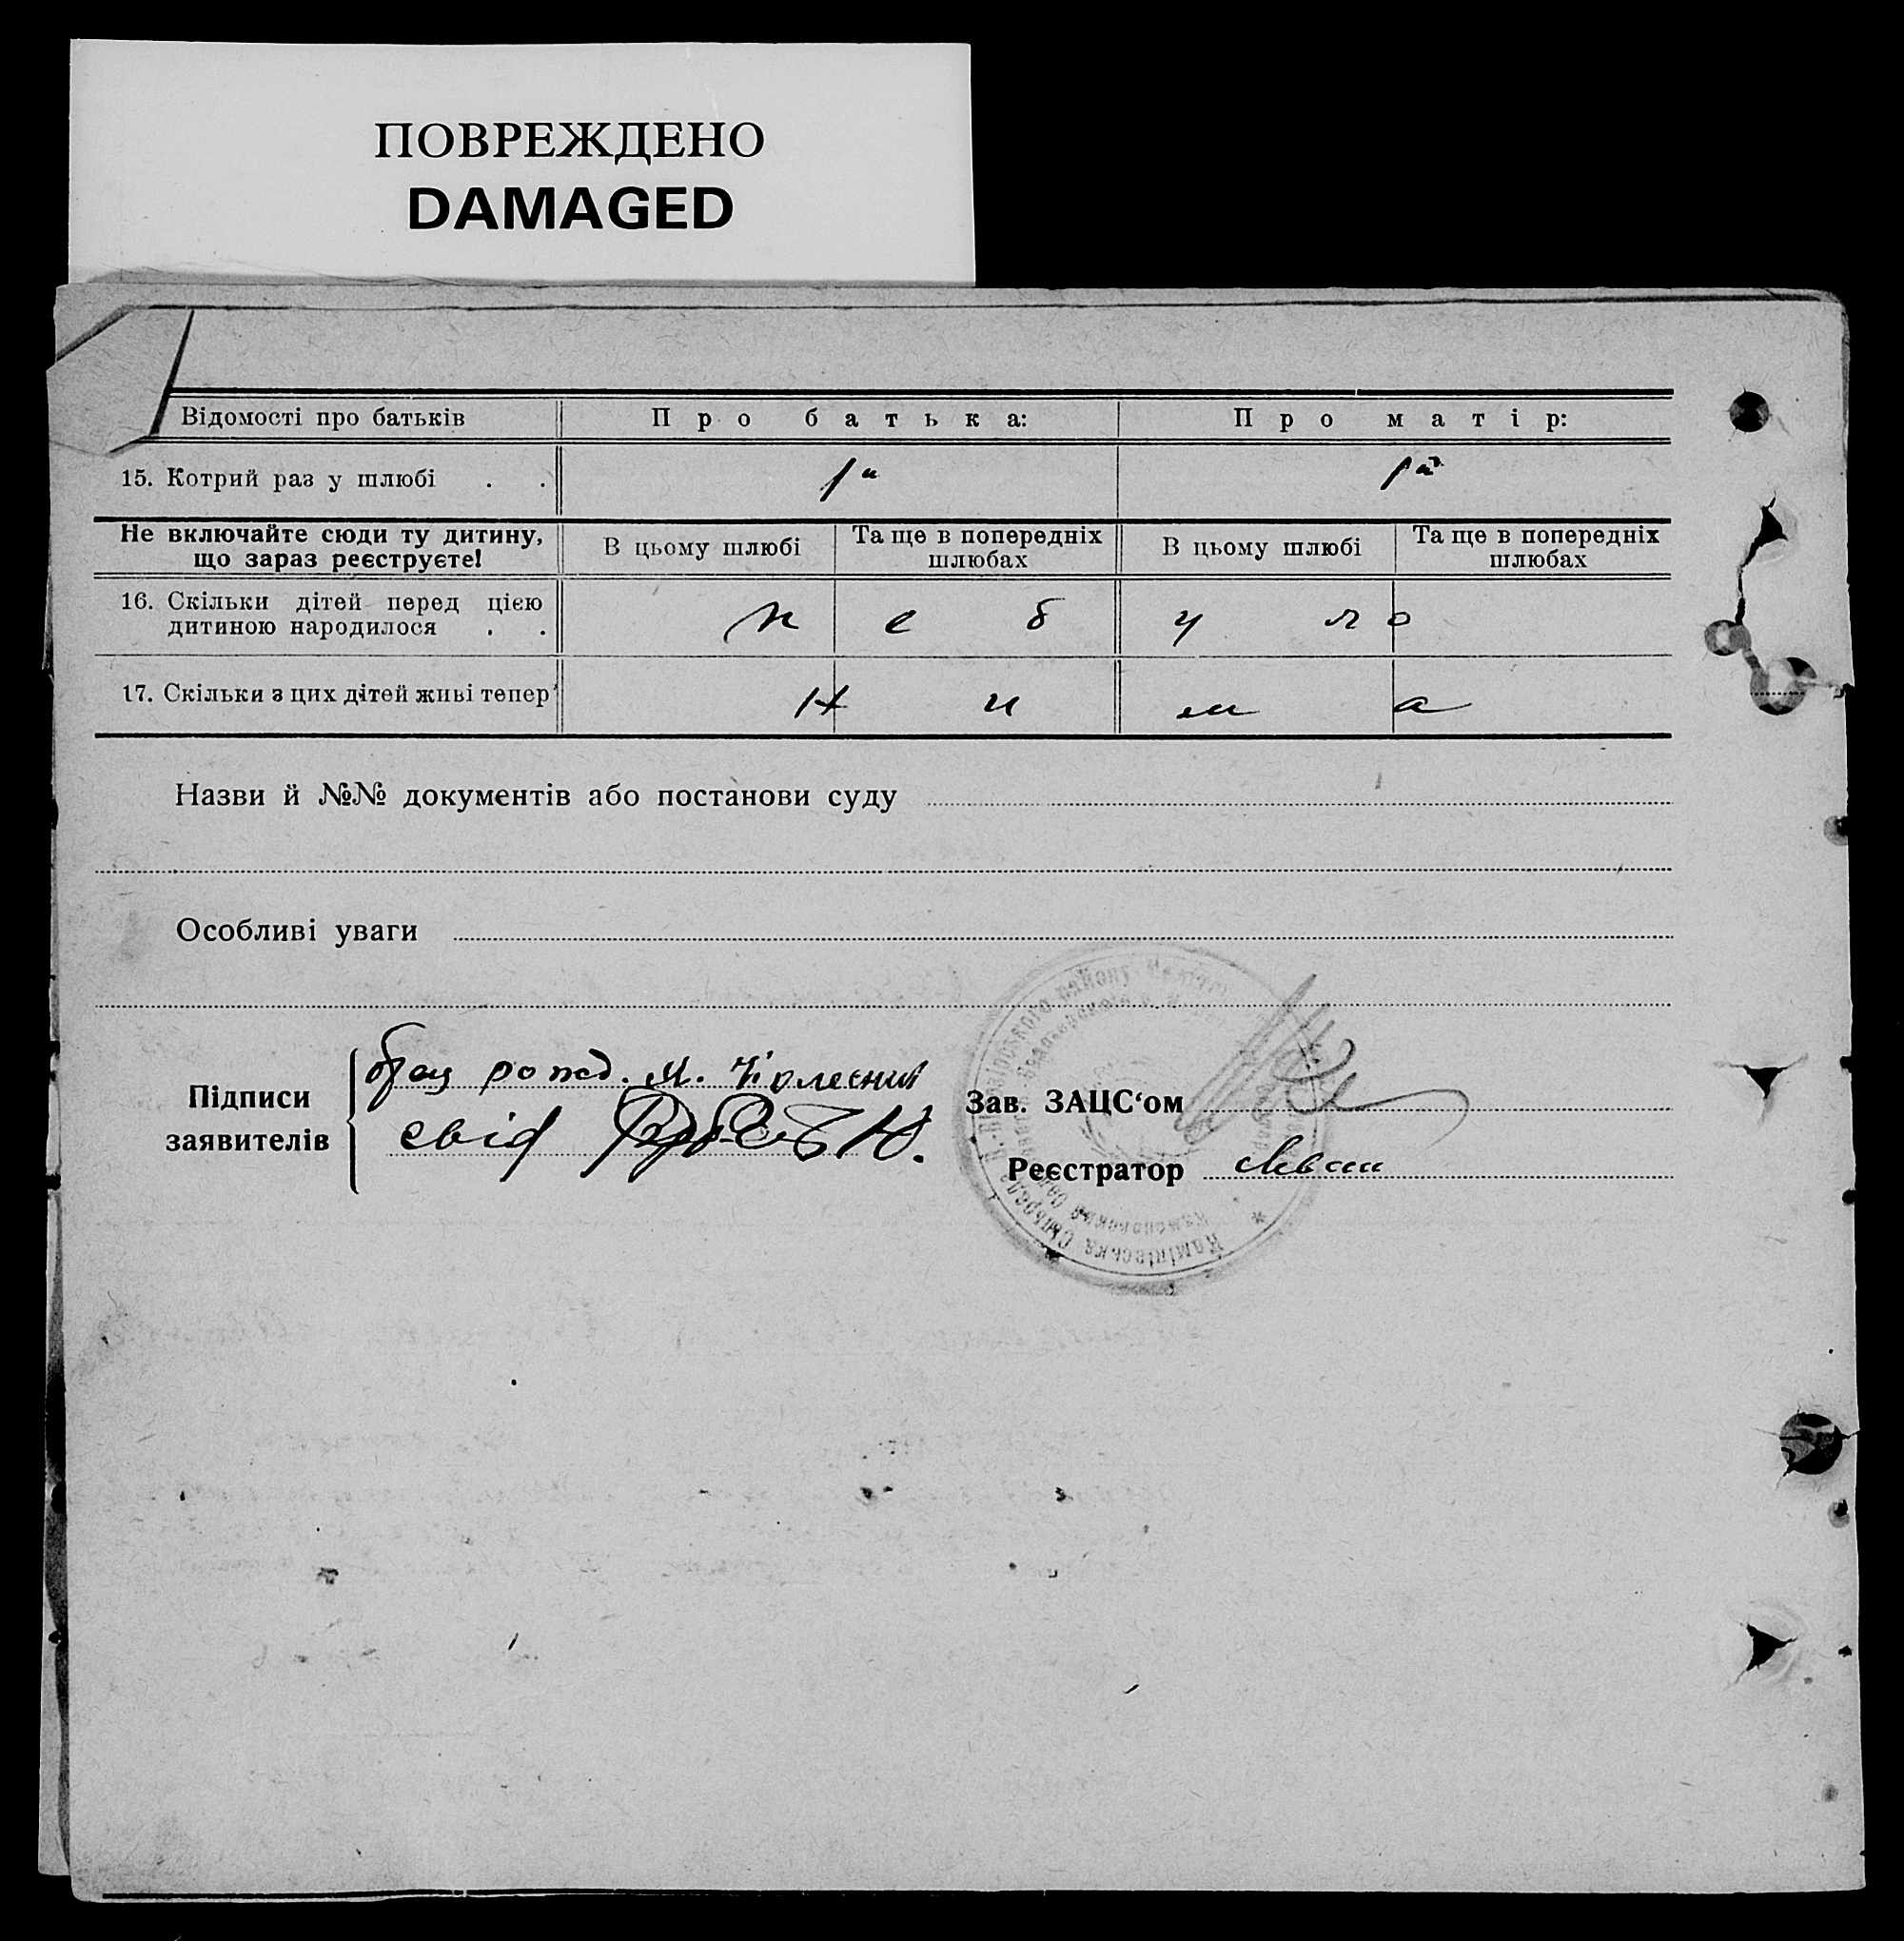 ПОВРЕЖДЕНО
DAMAGED
Відомості про батьків Про батька: Про матір:
15. Котрий раз у шлюбі . . 1й 1й
Не включайте сюди ту дитину, що зараз реєструєте! В цьому шлюбі Та ще в попередніх шлюбах В цьому шлюбі Та ще в попередніх шлюбах
16. Скільки дітей перед цією
дитиною народилося . . не було
17. Скільки з цих дітей живі тепер нима
Назви й №№ документів або постанови суду
Особливі уваги
Підписи
заявителів
М. Колесник
свід
Зав. ЗАЦС‘ом
Реєстратор
Сільрада
району